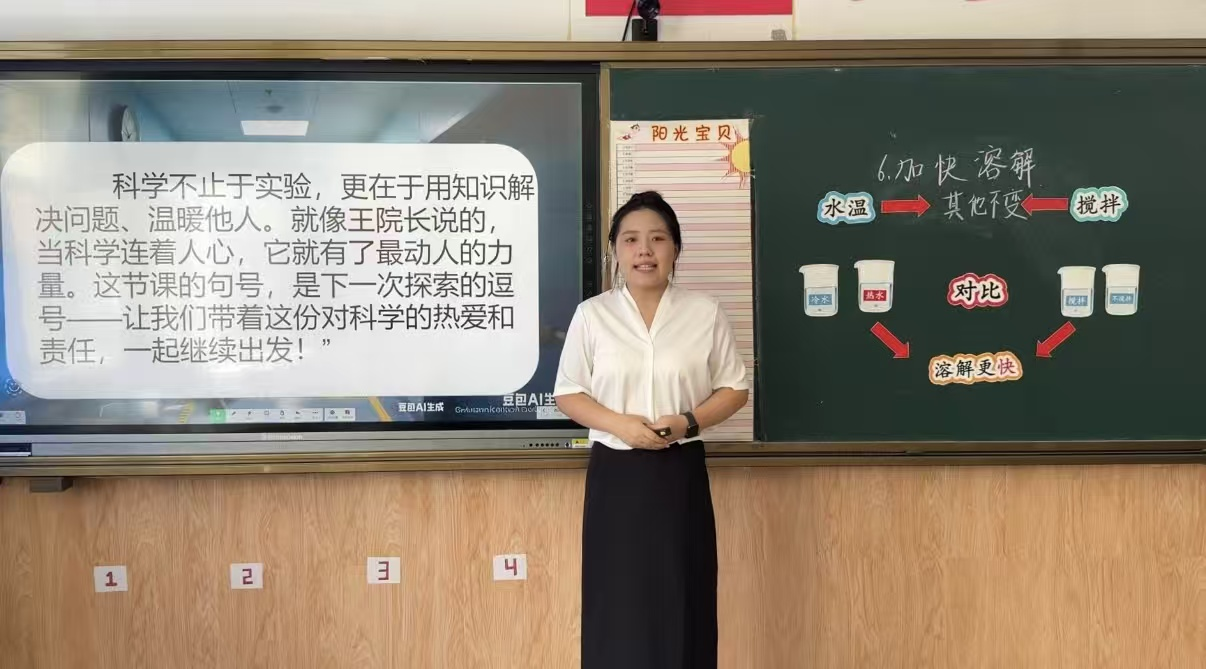 科学不止于实验，更在于用知识解
决问题、温暖他人。就像王院长说的，
当科学连着人心，它就有了最动人的力
量。这节课的句号，是下一次探索的逗
号——让我们带着这份对科学的热爱和
责任，一起继续出发！”
豆包AI生成
豆包AI生
阳光宝贝
6.加快溶解
水温
其他不变
搅拌
冷水
热水
对比
搅拌
不搅拌
溶解更快
1
2
3
4